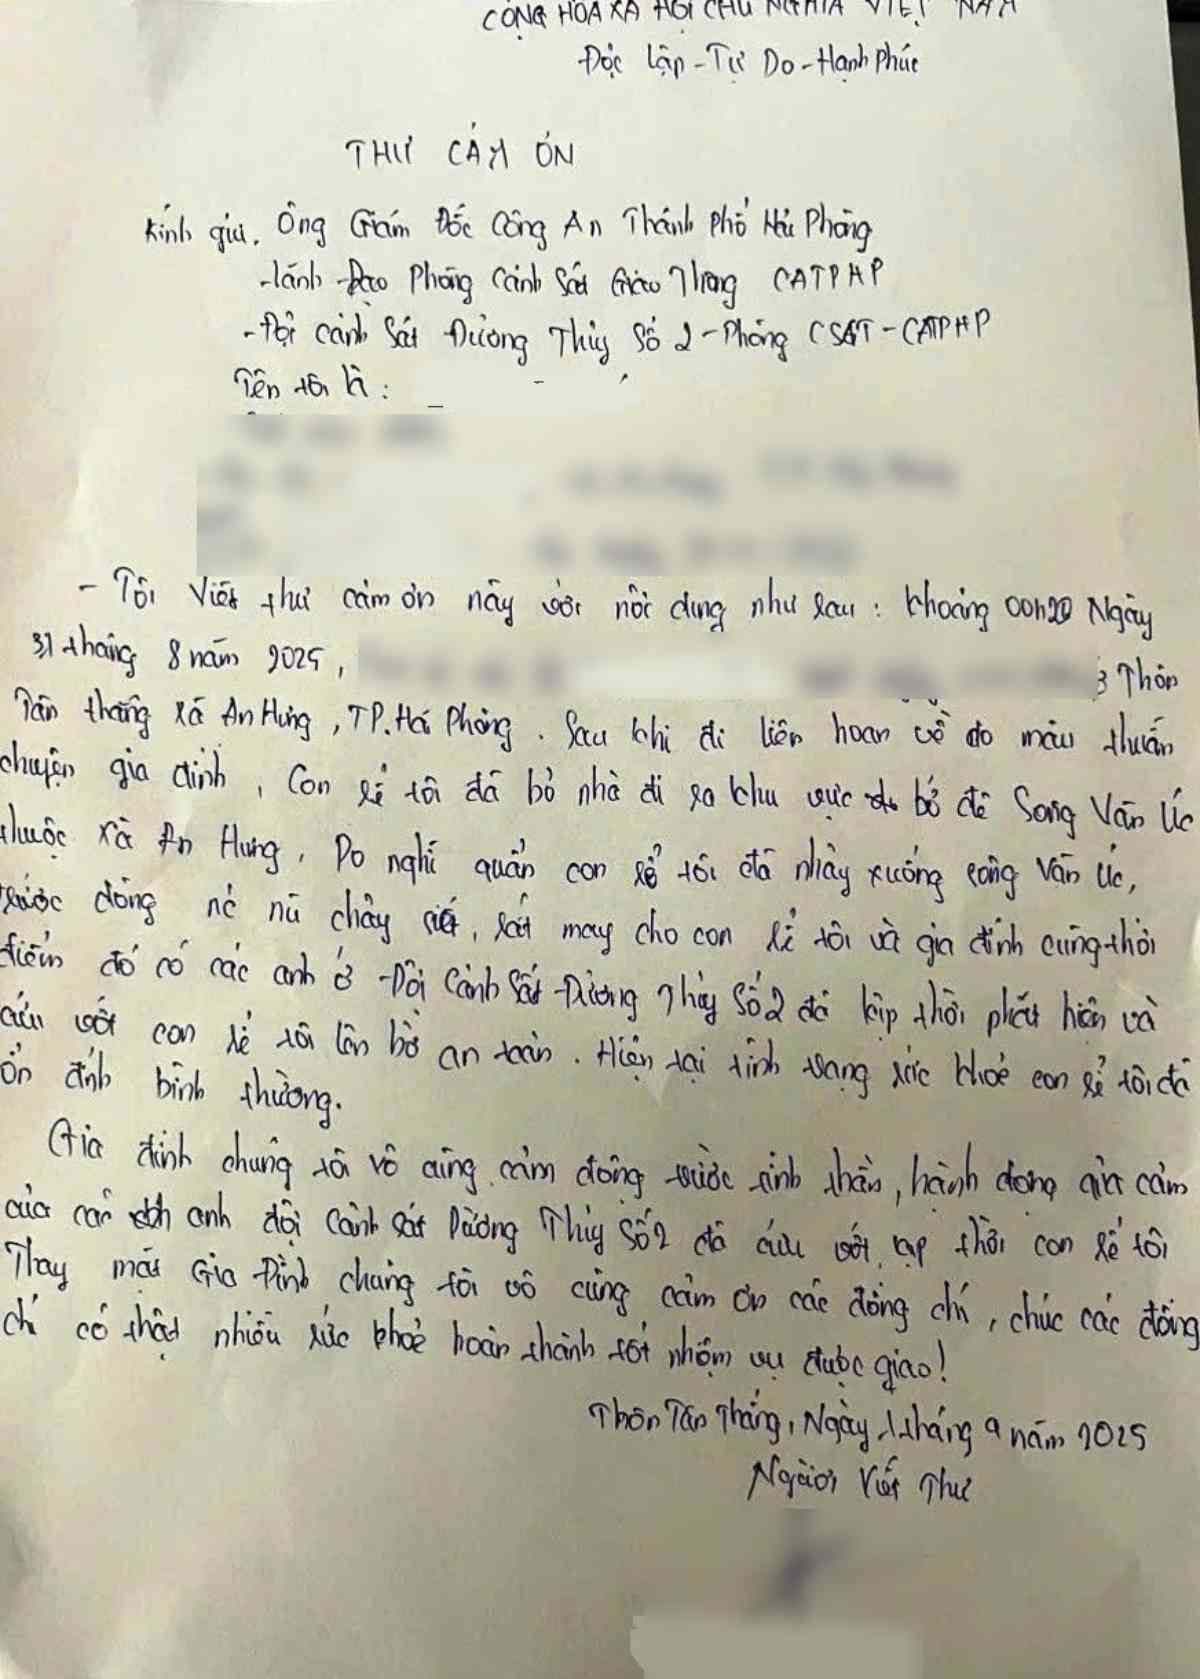 CỘNG HÒA XÃ HỘI CHỦ NGHĨA VIỆT NAM
Độc lập - Tự Do - Hạnh Phúc
THƯ CẢM ƠN
Kính gửi. Ông Giám Đốc Công An Thành Phố Hải Phòng
- Lãnh Đạo Phòng Cảnh Sát Giao Thông CATPHP
- Đội Cảnh Sát Đường Thủy Số 2 - Phòng CSGT - CATPHP
Tên tôi là :
- Tôi Viết thư cảm ơn này với nội dung như sau : khoảng 00h20 Ngày
31 tháng 8 năm 2025, 3 Thôn
Tân thắng xã An Hưng, TP. Hải Phòng. Sau khi đi liên hoan về do mâu thuẫn
chuyện gia đình, Con rể tôi đã bỏ nhà đi ra khu vực bờ đê Sông Văn Úc
thuộc xã An Hưng, Do nghĩ quẩn con rể tôi đã nhảy xuống sông Văn Úc,
trước dòng nước lũ chảy siết, rất may cho con rể tôi và gia đình cùng thời
điểm đó có các anh ở Đội Cảnh Sát Đường Thủy Số 2 đã kịp thời phát hiện và
cứu vớt con rể tôi lên bờ an toàn. Hiện tại tình trạng sức khoẻ con rể tôi đã
ổn định bình thường.
Gia đình chúng tôi vô cùng cảm động trước tinh thần, hành động quả cảm
của các anh đội Cảnh Sát Đường Thủy Số 2 đã cứu vớt kịp thời con rể tôi
Thay mặt Gia Đình chúng tôi vô cùng cảm ơn các đồng chí, chúc các đồng
chí có thật nhiều sức khoẻ hoàn thành tốt nhiệm vụ được giao!
Thôn Tân Thắng, Ngày 1 tháng 9 năm 2025
Người Viết Thư